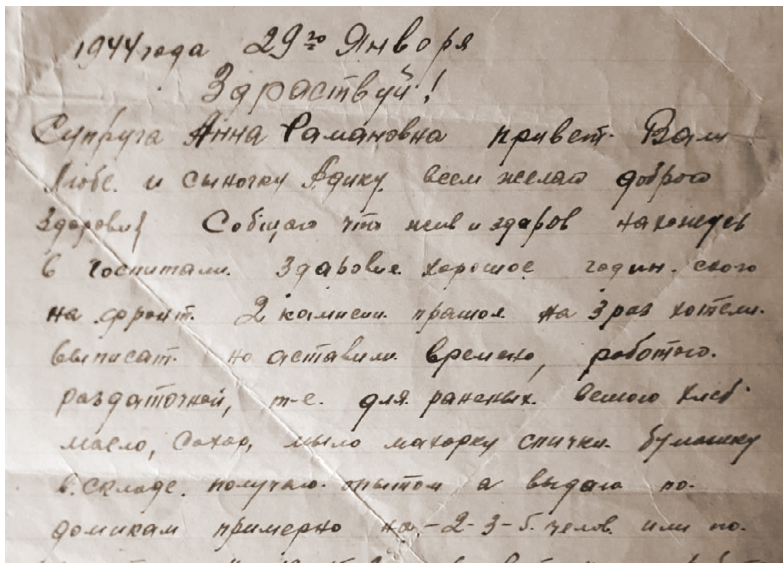 1944 года 29го Января
Здраствуй!
Супруга Анна Рамановна привет Вали
Любе и сыночку Адику всем желаю доброго
Здоровия Собщаю что жив и здаров нахожусь
в госпитали. Здаровие хорошое годин скоро
на фронт. 2 камисии прашол на 3 раз хотели
выписат. но аставили времено, работаю
раздаточной, т-е. для раненых вешаю хлеб
масло, сахар, мыло махорку спички бумашку
в складе получаю оптом а выдаю по
домикам примерно на-2-3-5 челов или по